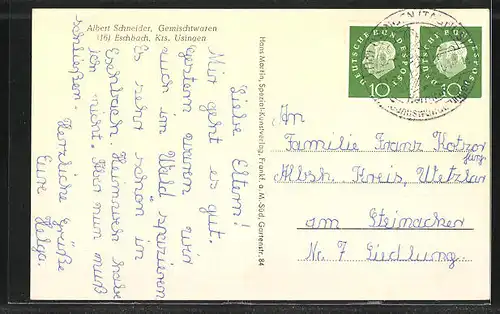 Albert Schneider, Gemischtwaren
Eschbach, Krs. Usingen
Liebe Eltern!
Mir geht es gut.
Gestern waren wir
auch im Wald spazieren
Es sehr schön in
Eschbach. Heimweh habe
ich nicht. Aber nun muß
schließen. Herzliche Grüße
Eure Helga.
Hans Martin, Spezial-Kunstverlag, Frankf. a. M.-Süd, Gartenstr. 84
DEUTSCHE BUNDESPOST
10
DEUTSCHE BUNDESPOST
10
An
Familie Franz Kotzor
jung.
Albsh. Kreis, Wetzlar
am Steinacker
Nr. 7 Siedlung.